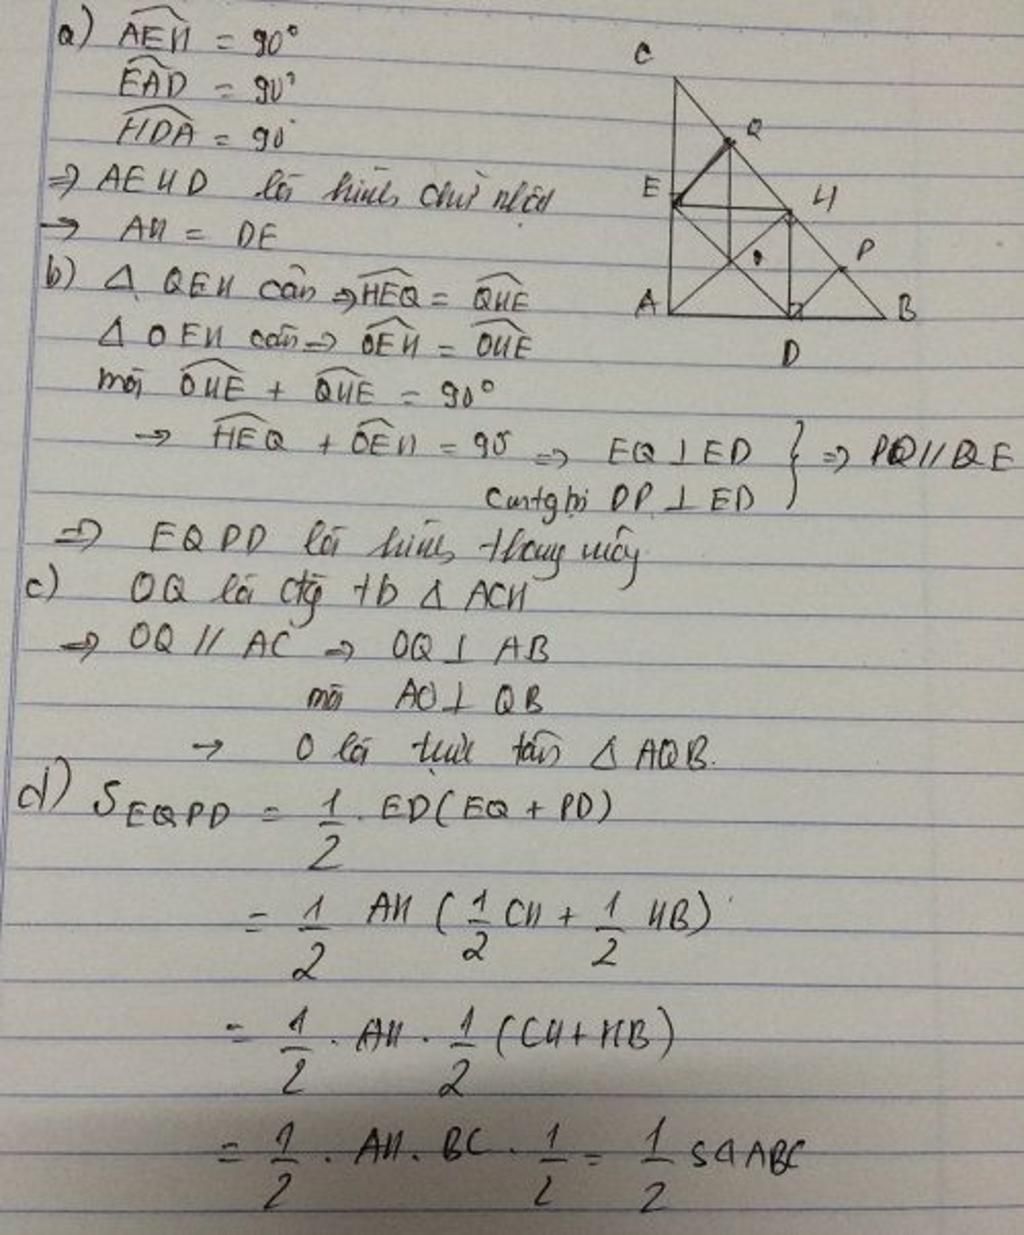 a) AEH = 90°
EAD = 90°
HDA = 90°
⇒ AEHD là hình chữ nhật
→ AH = DE
b) Δ QEH cân ⇒ HEQ = QHE
Δ OEH cân ⇒ OEH = OHE
mà OHE + QHE = 90°
→ HEQ + OEH = 90° ⇒ EQ ⊥ ED } ⇒ PD // QE
DP ⊥ ED
⇒ EQPD là hình thang vuông
c) OQ là đg tb Δ ACH
⇒ OQ // AC ⇒ OQ ⊥ AB
mà AO ⊥ QB
→ O là trực tâm Δ AQB.
d) S EQPD = 1/2 . ED (EQ + PD)
= 1/2 AH (1/2 CH + 1/2 HB)
= 1/2 . AH . 1/2 (CH + HB)
= 1/2 . AH . BC . 1/2 = 1/2 SΔABC
C
Q
E
H
P
O
A
B
D